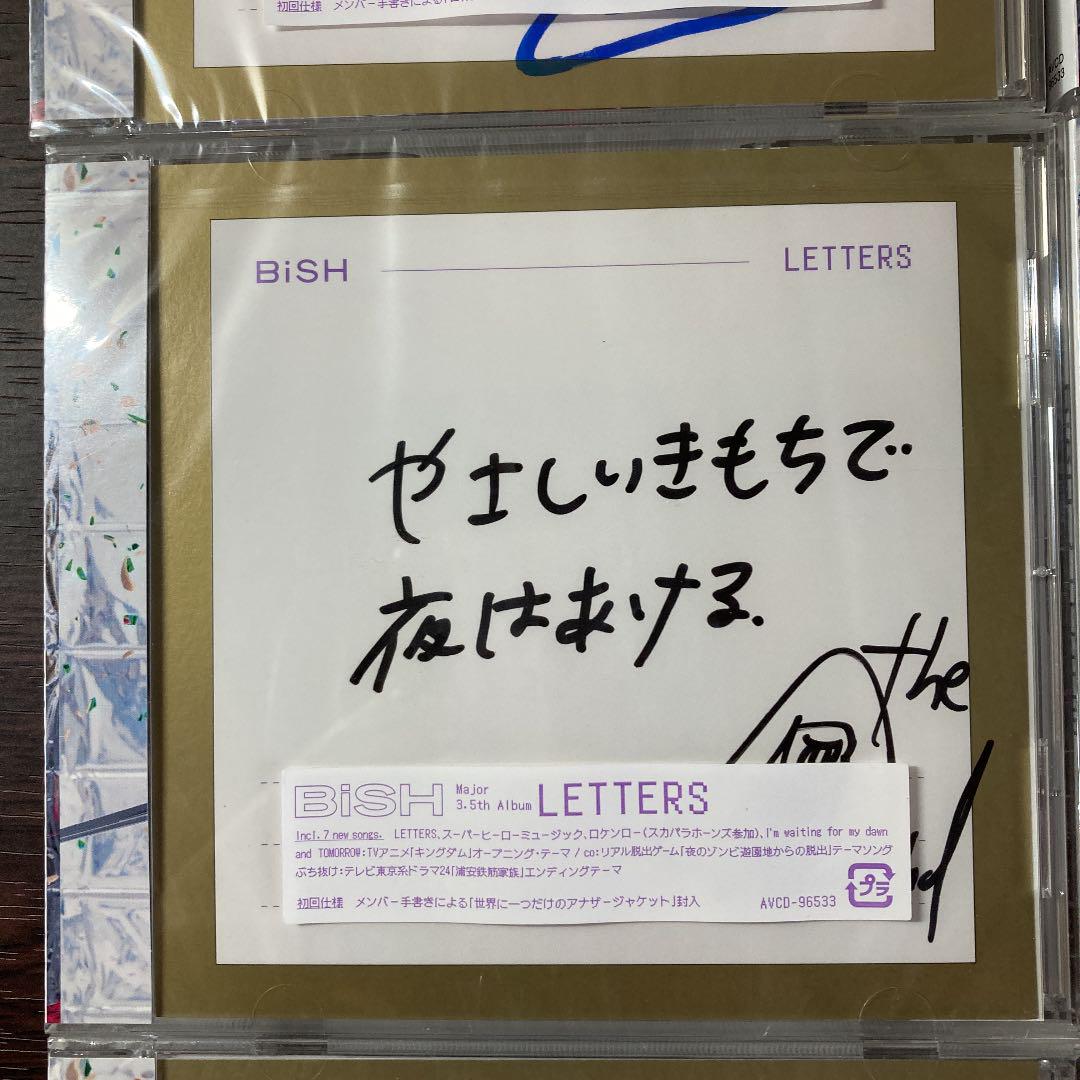 初回仕様 メンバー手書きによる
AVCD
96533
BiSH LETTERS
やさしいきもちで
夜はあける.
the
BiSH Major 3.5th Album LETTERS
Incl. 7 new songs. LETTERS、スーパーヒーローミュージック、ロケンロー(スカパラホーンズ参加)、I'm waiting for my dawn
and TOMORROW:TVアニメ「キングダム」オープニング・テーマ / co:リアル脱出ゲーム「夜のゾンビ遊園地からの脱出」テーマソング
ぶち抜け:テレビ東京系ドラマ24「浦安鉄筋家族」エンディングテーマ
プラ
初回仕様 メンバー手書きによる「世界に一つだけのアナザージャケット」封入 AVCD-96533